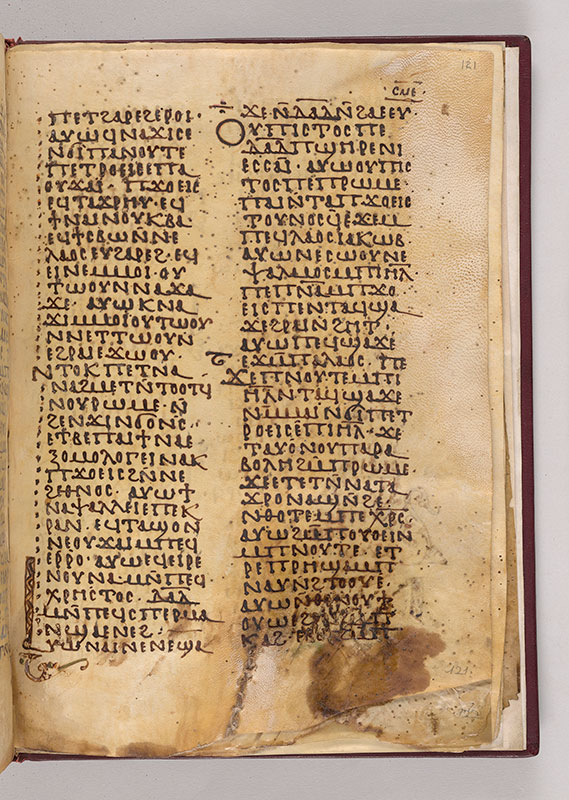 ⲡⲉⲧϩⲁⲣⲉϩⲉⲣⲟⲓ·
ⲁⲩⲱϥⲛⲁϫⲓⲥⲉ
ⲛ̄ϭⲓⲡⲁⲛⲟⲩⲧⲉ
ⲡⲉⲧⲣⲟⲉⲓⲥⲉⲡⲁ
ⲟⲩϫⲁⲓ· ⲡϫⲟⲉⲓⲥ
ⲉϥⲧⲁϫⲣⲏⲩ· ⲉϥ
ϯⲛⲁⲓⲛⲟⲩⲕⲃⲁ
ⲉϥϯⲥⲃⲱⲛ̄ⲛⲉ
ⲗⲁⲟⲥⲉⲩϩⲁⲣⲉϩ· ⲉϥ
ⲉⲓⲛⲉⲙ̄ⲙⲟⲓ· ⲟⲩ
ⲧⲱⲟⲩⲛⲛⲁϫⲁ
ϫⲉ· ⲁⲩⲱⲕⲛⲁ
ϫⲓⲙⲙⲟⲓⲟⲩⲧⲱⲟⲩ
ⲛⲛⲉⲧⲧⲱⲟⲩⲛ
ⲉϩⲣⲁⲓⲉϫⲱⲟⲩ·
ⲛⲧⲟⲕⲡⲉⲧⲛⲁ
ⲛⲁϩⲙⲉⲧⲛ̄ⲧⲟⲟⲧϥ
ⲛⲟⲩⲣⲱⲙⲉ· ⲛ̄
ϩⲉⲛϫⲓⲛϭⲟⲛⲥ·
ⲉⲧⲃⲉⲡⲁⲓϯⲛⲁⲉ
ⲝⲟⲙⲟⲗⲟⲅⲉⲓⲛⲁⲕ
ⲡϫⲟⲉⲓⲥϩⲛ̄ⲛⲉ
ϩⲉⲑⲛⲟⲥ· ⲁⲩⲱϯ
ⲛⲁⲯⲁⲗⲗⲉⲓⲉⲡⲉⲕ
ⲣⲁⲛ· ⲉϥⲧⲁϣⲟⲛ̄
ⲛⲉⲟⲩϫⲁⲓⲙ̄ⲡⲉϥ
ⲉⲣⲣⲟ· ⲁⲩⲱⲉϥⲉⲓⲣⲉ
ⲛⲟⲩⲛⲁⲙⲛ̄ⲡⲉϥ
ⲭⲣⲏⲥⲧⲟⲥ· ⲇⲁⲇ
ⲙⲛ̄ⲡⲉϥⲥⲡⲉⲣⲙⲁ
ⲛϣⲁⲉⲛⲉϩ·
ⲩⲱⲛⲁⲓⲛⲉⲛⲉϣⲁ
ⲥⲙⲉ·
ϫⲉⲛ̄ⲇⲁⲇⲛ̄ϩⲁⲉⲉⲩ·
ⲟⲩⲡⲓⲥⲧⲟⲥⲡⲉ
ⲇⲁⲇⲡϣⲏⲣⲉⲛⲓ
ⲉⲥⲥⲁⲓ· ⲁⲩⲱⲟⲩⲡⲓⲥ
ⲧⲟⲥⲡⲉⲡⲣⲱⲙⲉ·
ⲡⲁⲓⲛⲧⲁⲡϫⲟⲉⲓⲥ
ⲧⲟⲩⲛⲟⲥϥⲉϫⲉⲙ
ⲡⲉϥⲗⲁⲟⲥⲓⲁⲕⲱⲃ·
ⲁⲩⲱⲛⲉⲥⲱⲟⲩⲛⲉ
ⲯⲁⲗⲙⲟⲥⲙ̄ⲡⲓⲏ̄ⲗ
ⲡⲉⲡⲛⲁⲙⲡϫⲟ
ⲉⲓⲥⲡⲉⲛⲧⲁϥϣⲁ
ϫⲉϩⲣⲁⲓⲛ̄ϩⲏⲧ·
ⲁⲩⲱⲡⲉϥϣⲁϫⲉ
ⲉϫⲙ̄ⲡⲁⲗⲁⲥ· ⲡⲉ
ϫⲉⲡⲛⲟⲩⲧⲉⲙⲡⲓ
ⲏ̄ⲗⲛ̄ⲧⲁϥϣⲁϫⲉ
ⲛⲙ̄ⲙⲁⲓⲛ̄ϭⲓⲡⲉⲧ
ⲣⲟⲉⲓⲥⲉⲡⲓⲏ̄ⲗ· ϫⲉ
ⲧⲁⲩⲟⲛⲟⲩⲡⲁⲣⲁ
ⲃⲟⲗⲏϩⲙ̄ⲡⲣⲱⲙⲉ·
ϫⲉⲉⲧⲉⲧⲛ̄ⲛⲁⲧⲁ
ϫⲣⲟⲛⲁϣⲛ̄ϩⲉ·
ⲛⲑⲟⲧⲉⲙⲡⲉⲭⲣⲥ·
ⲁⲩⲱϩⲙ̄ⲡⲟⲩⲟⲉⲓⲛ
ⲙⲡⲛⲟⲩⲧⲉ· ⲉⲧ
ⲣⲉⲡⲣⲏϣⲙ̄ⲡ
ⲛⲁⲩⲛϩⲧⲟⲟⲩⲉ·
ⲁⲩⲱ